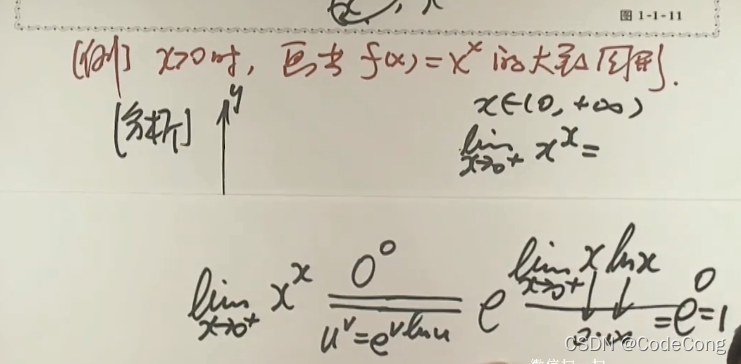 图 1-1-11
[例] x>0时, 画出 f(x)=x^x 的大致图形.
[分析] y x∈(0, +∞)
lim x→0+ x^x =
lim x→0+ x^x 0^0 u^v=e^{v ln u} e^{lim x→0+ x ln x} 0·∞ =e^0=1
CSDN @CodeCong